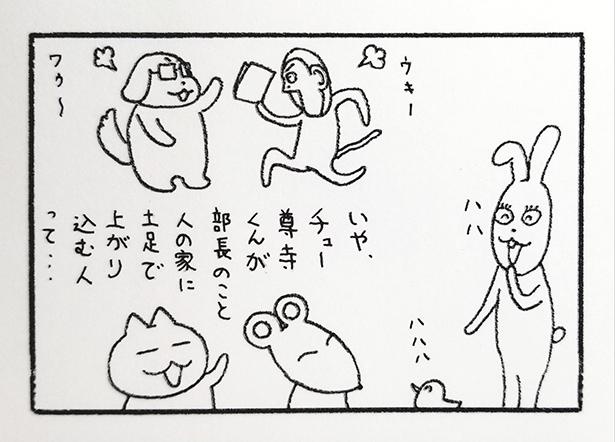 ハハ
ウキー
ワゥ〜
いや、
チュー
尊寺
くんが
部長のこと
人の家に
土足で
上がり
込む人
って…
ハハハ